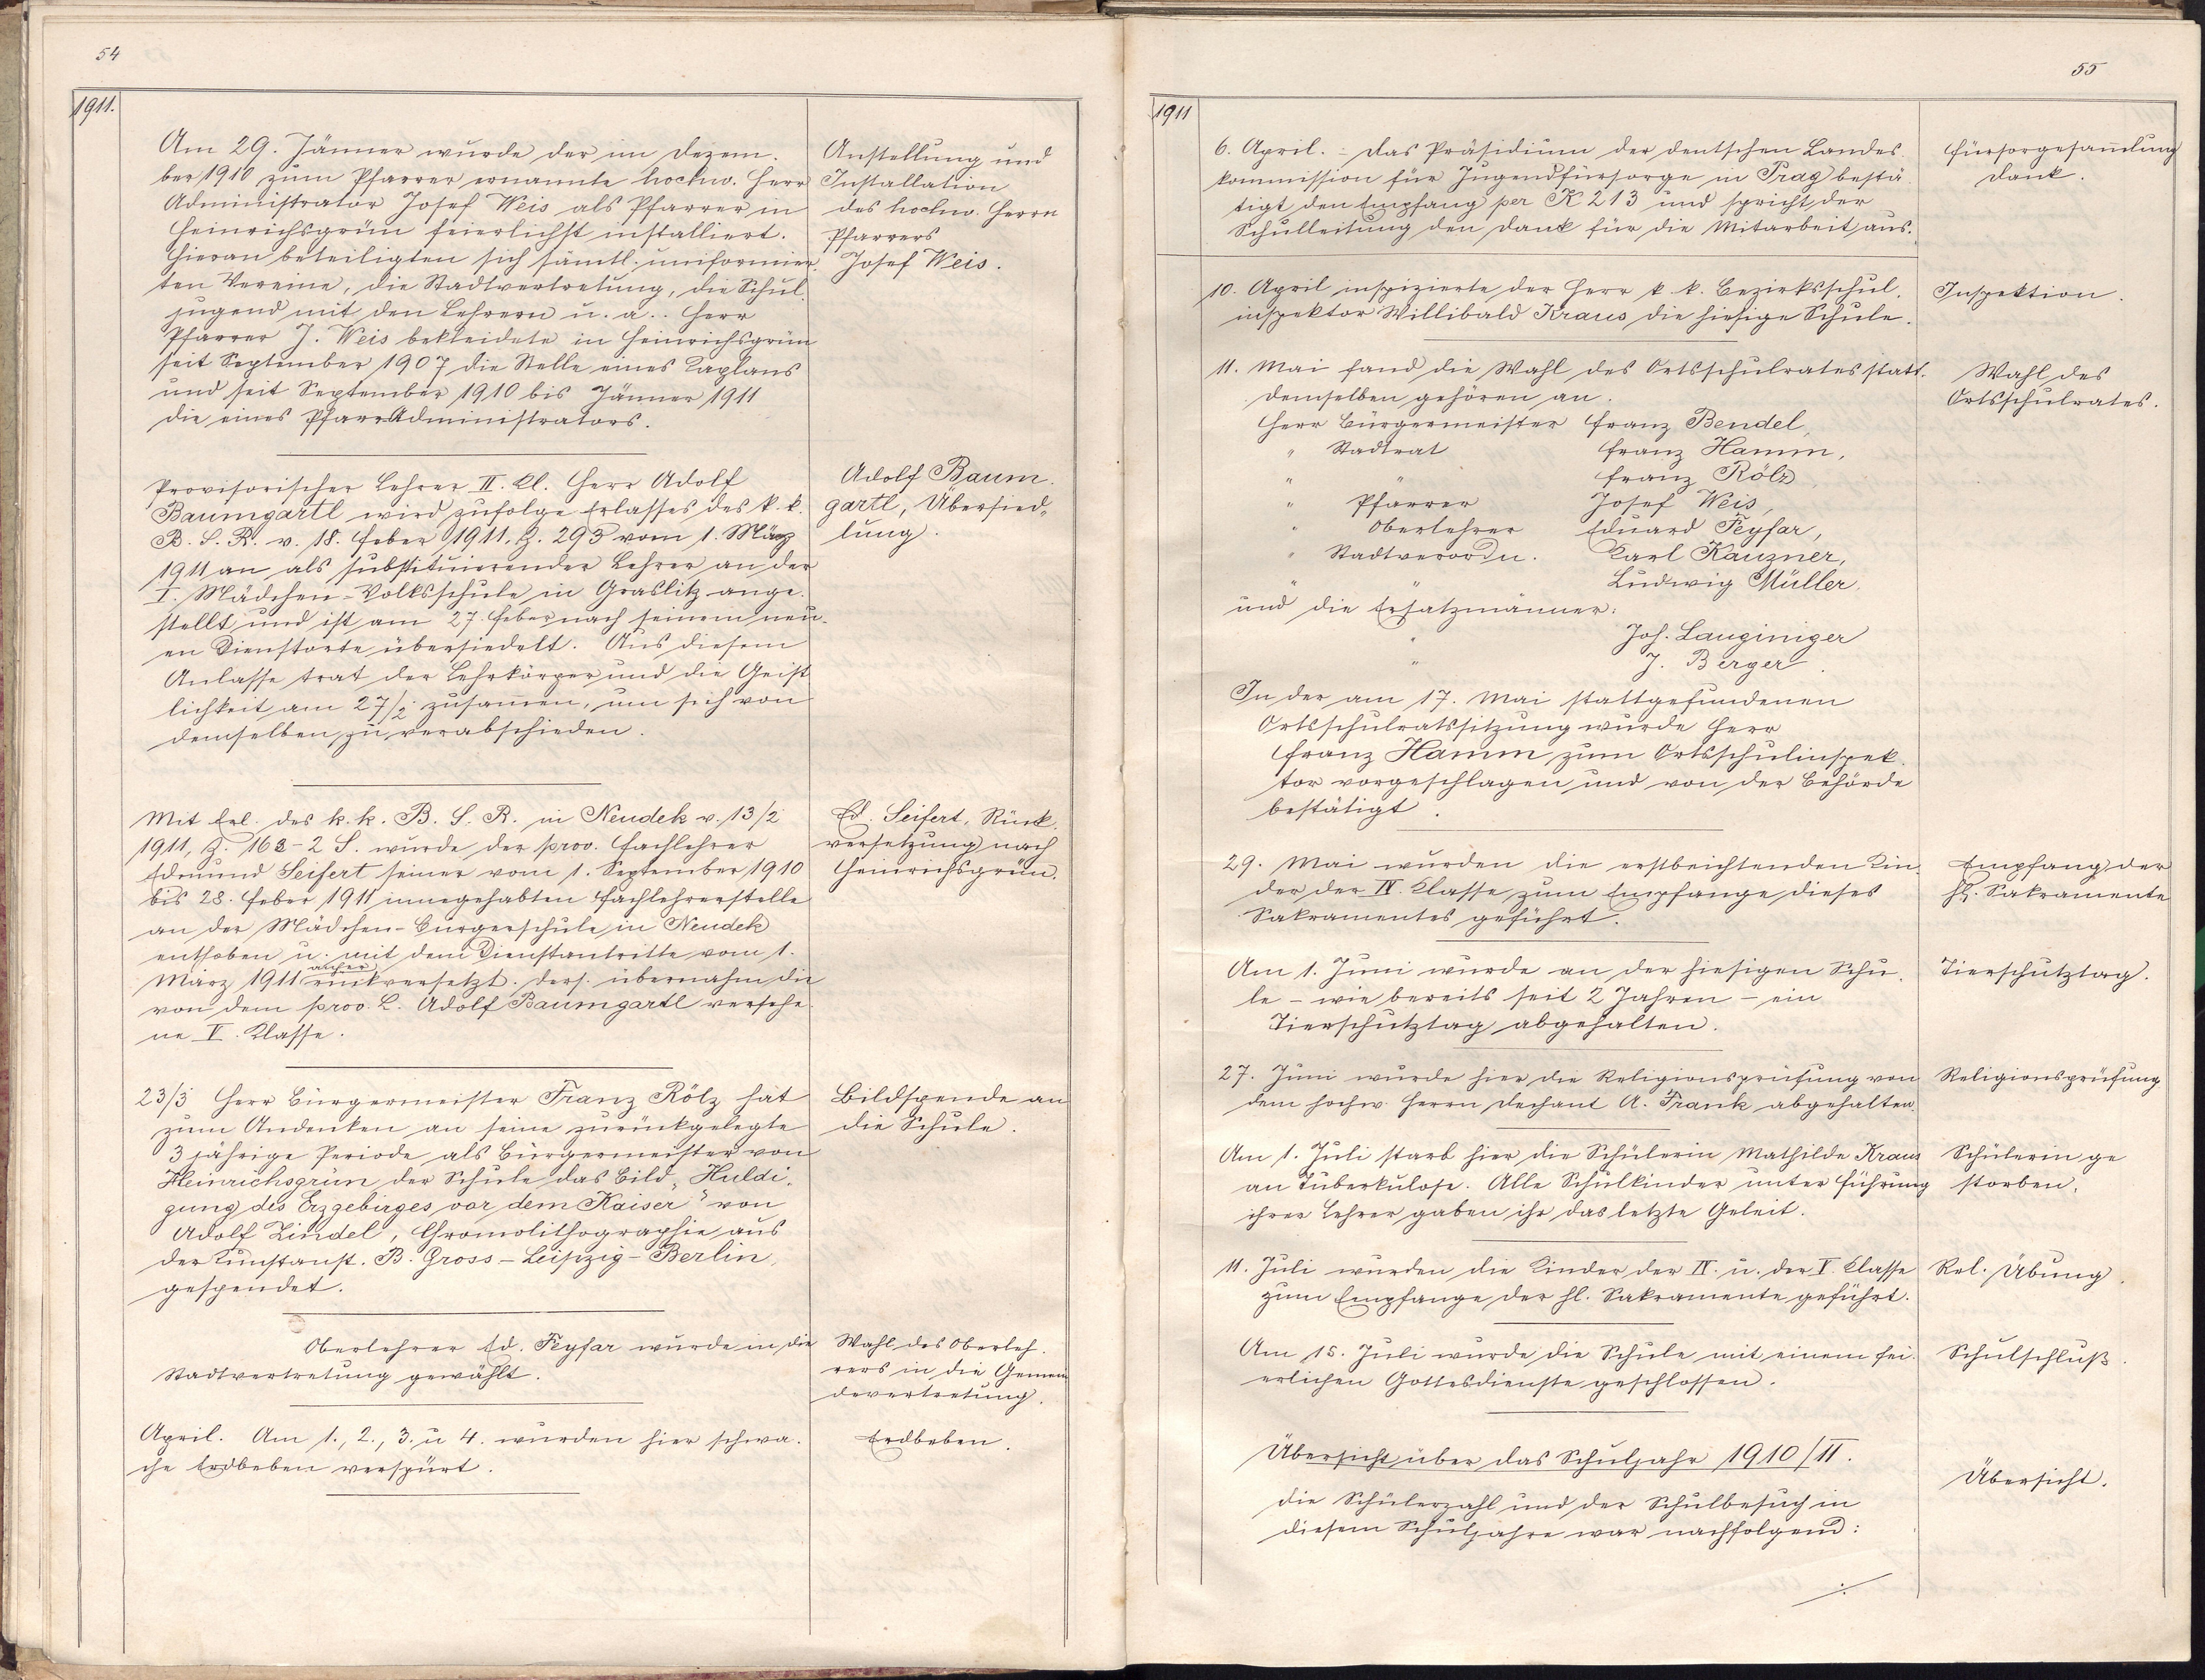 54
1911.
Am 29. Jänner wurde der im Dezem-
ber 1910 zum Pfarrer ernannte hochw. Herr
Administrator Josef Weis als Pfarrer in
Heinrichsgrün feierlichst installiert.
Hieran beteiligten sich sämtl. uniformier-
ten Vereine, die Stadtvertretung, die Schul-
jugend mit den Lehrern u. a.. Herr
Pfarrer J. Weis bekleidete in Heinrichsgrün
seit September 1907 die Stelle eines Kaplans
und seit September 1910 bis Jänner 1911
die eines PfarrAdministrators.
Anstellung und
Installation
des hochw. Herrn
Pfarrers
Josef Weis.
Provisorischer Lehrer II. Kl. Herr Adolf
Baumgartl wird zufolge Erlasses des k. k.
B. S. R. v. 18. Feber 1911. Z. 293 vom 1. März
1911 an als substituierender Lehrer an der
I. Mädchen-Volksschule in Graslitz ange-
stellt und ist am 27. Feber nach seinem neu-
en Dienstorte übersiedelt. Aus diesem
Anlasse trat der Lehrkörper und die Geist
lichkeit am 27/2 zusammen, um sich von
demselben zu verabschieden.
Adolf Baum-
gartl, Übersied-
lung.
Mit Erl. des k. k. B. S. R. in Neudek v. 13/2
1911, Z. 163-2 S. wurde der prov. Fachlehrer
Edmund Seifert seiner vom 1. September 1910
bis 28. Feber 1911 innegehabten Fachlehrerstelle
an der Mädchen-Bürgerschule in Neudek
enthoben u. mit dem Dienstantritte vom 1.
anher
März 1911 rückversetzt. Ders. übernahm die
von dem prov. L. Adolf Baumgartl versehe-
ne V. Klasse.
Ed. Seifert, Rück-
versetzung nach
Heinrichsgrün.
23/3 Herr Bürgermeister Franz Rölz hat
zum Andenken an seine zurückgelegte
3 jährige Periode als Bürgermeister von
Heinrichsgrün der Schule das Bild „Huldi-
gung des Erzgebirges vor dem Kaiser" von
Adolf Zindel, Chromolithographie aus
der Kunstanst. B. Gross-Leipzig-Berlin,
gespendet.
Bildspende an
die Schule.
Oberlehrer Ed. Feyfar wurde in die
Stadtvertretung gewählt.
Wahl des Oberleh-
rers in die Gemein
devertretung.
April. Am 1., 2., 3. u 4. wurden hier schwa-
che Erdbeben verspürt.
Erdbeben.
55
1911
6. April. - Das Präsidium der deutschen Landes-
kommission für Jugendfürsorge in Prag bestä-
tigt den Empfang per K 213 und spricht der
Schulleitung den Dank für die Mitarbeit aus.
Fürsorgesammlung
Dank.
10. April inspizierte der Herr k. k. Bezirksschul-
inspektor Willibald Kraus die hiesige Schule.
Inspektion.
11. Mai fand die Wahl des Ortsschulrates statt.
Demselben gehören an.
Herr Bürgermeister Franz Bendel,
" Stadtrat Franz Hamm,
" " Franz Rölz
" Pfarrer Josef Weis,
" Oberlehrer Eduard Feyfar,
" Stadtverordn. Karl Kauzner,
" " Ludwig Müller.
und die Ersatzmänner:
" Joh. Langiniger
" J. Berger.
Wahl des
Ortsschulrates.
In der am 17. Mai stattgefundenen
Ortsschulratssitzung wurde Herr
Franz Hamm zum Ortsschulinspek-
tor vorgeschlagen und von der Behörde
bestätigt.
29. Mai wurden die erstbeichtenden Kin-
der der IV. Klasse zum Empfange dieses
Sakramentes geführt.
Empfang der
hl. Sakramente
Am 1. Juni wurde an der hiesigen Schu-
le - wie bereits seit 2 Jahren - ein
Tierschutztag abgehalten.
Tierschutztag.
27. Juni wurde hier die Religionsprüfung von
dem hochw. Herrn Dechant A. Frank abgehalten.
Religionsprüfung
Am 1. Juli starb hier die Schülerin Mathilde Kraus
an Tuberkulose. Alle Schulkinder unter Führung
ihrer Lehrer gaben ihr das letzte Geleit.
Schülerin ge
storben.
11. Juli wurden die Kinder der IV. u. der V. Klasse
zum Empfange der hl. Sakramente geführt.
Rel. Übung.
Am 15. Juli wurde die Schule mit einem fei-
erlichen Gottesdienste geschlossen.
Schulschluß.
Übersicht über das Schuljahr 1910/11.
Die Schülerzahl und der Schulbesuch in
diesem Schuljahre war nachfolgend:
Übersicht.
./.